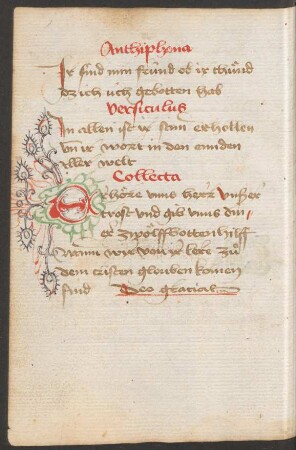 Anthiphona
Ir sind min fründ ob ir thuͦnd
dz ich uch gebotten hab
Versiculus
In allen ist ir stim erhollen
vn̄ ir wort in den ennden
aller welt
Collecta
Erhöre vnns herr vnser
trost vnd gib vnns din
er zwölffbotten hilff
wenn wir von ir lere zuͦ
dem cristen glouben komen
sind Deo gracias